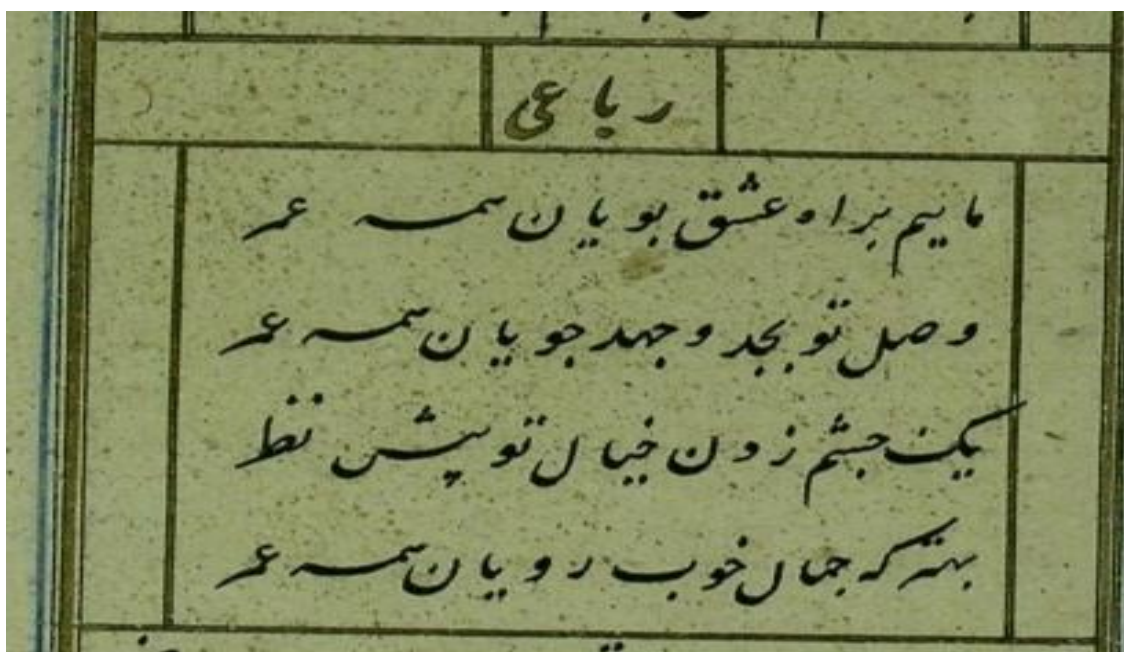 رباعی
مائیم براه عشق پویان همه عمر
وصل تو بجد و جهد جویان همه عمر
یک چشم زدن خیال تو پیش نظر
بهتر که جمال خوب رویان همه عمر